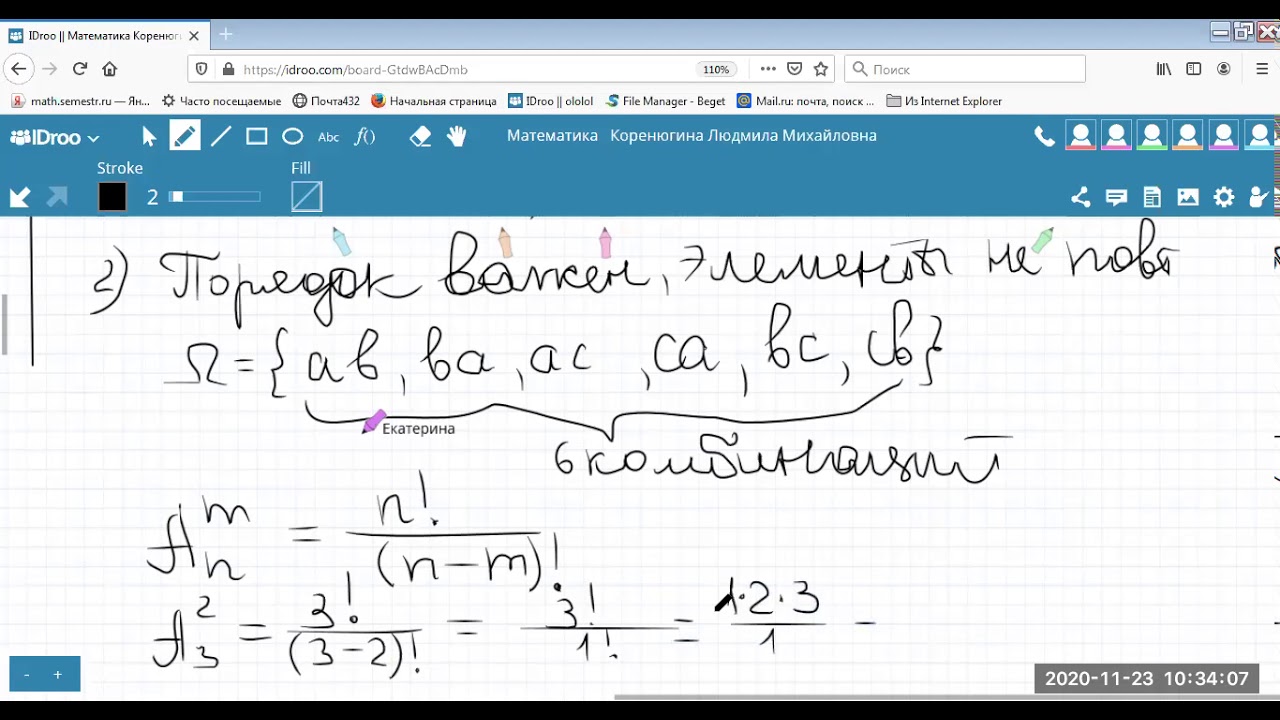 IDroo || Математика Коренюги
https://idroo.com/board-GtdwBAcDmb
110%
Поиск
math.semestr.ru — Ян...
Часто посещаемые
Почта432
Начальная страница
IDroo || ololol
File Manager - Beget
Mail.ru: почта, поиск ...
Из Internet Explorer
IDroo
Abc
f()
Математика Коренюгина Людмила Михайловна
Stroke
Fill
2
2) Порядок важен, элементы не повт
Ω = {ав, ва, ас, са, вс, св}
Екатерина
6 комбинаций
A_n^m = n! / (n-m)!
A_3^2 = 3! / (3-2)! = 3! / 1! = 1·2·3 / 1 =
- +
2020-11-23 10:34:07